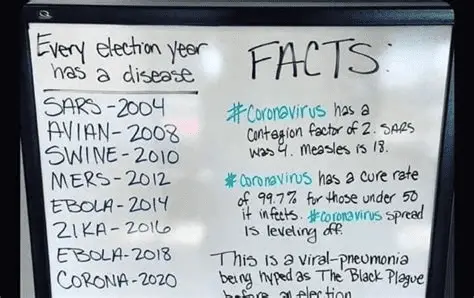 Every election year
has a disease
SARS-2004
AVIAN-2008
SWINE-2010
MERS-2012
EBOLA-2014
ZIKA-2016
EBOLA-2018
CORONA-2020
FACTS:
#Coronavirus has a
Contagion factor of 2. SARS
was 4. Measles is 18.
#Coronavirus has a cure rate
of 99.7% for those under 50
it infects. #Coronavirus spread
is leveling off.
This is a viral-pneumonia
being hyped as The Black Plague
before an election